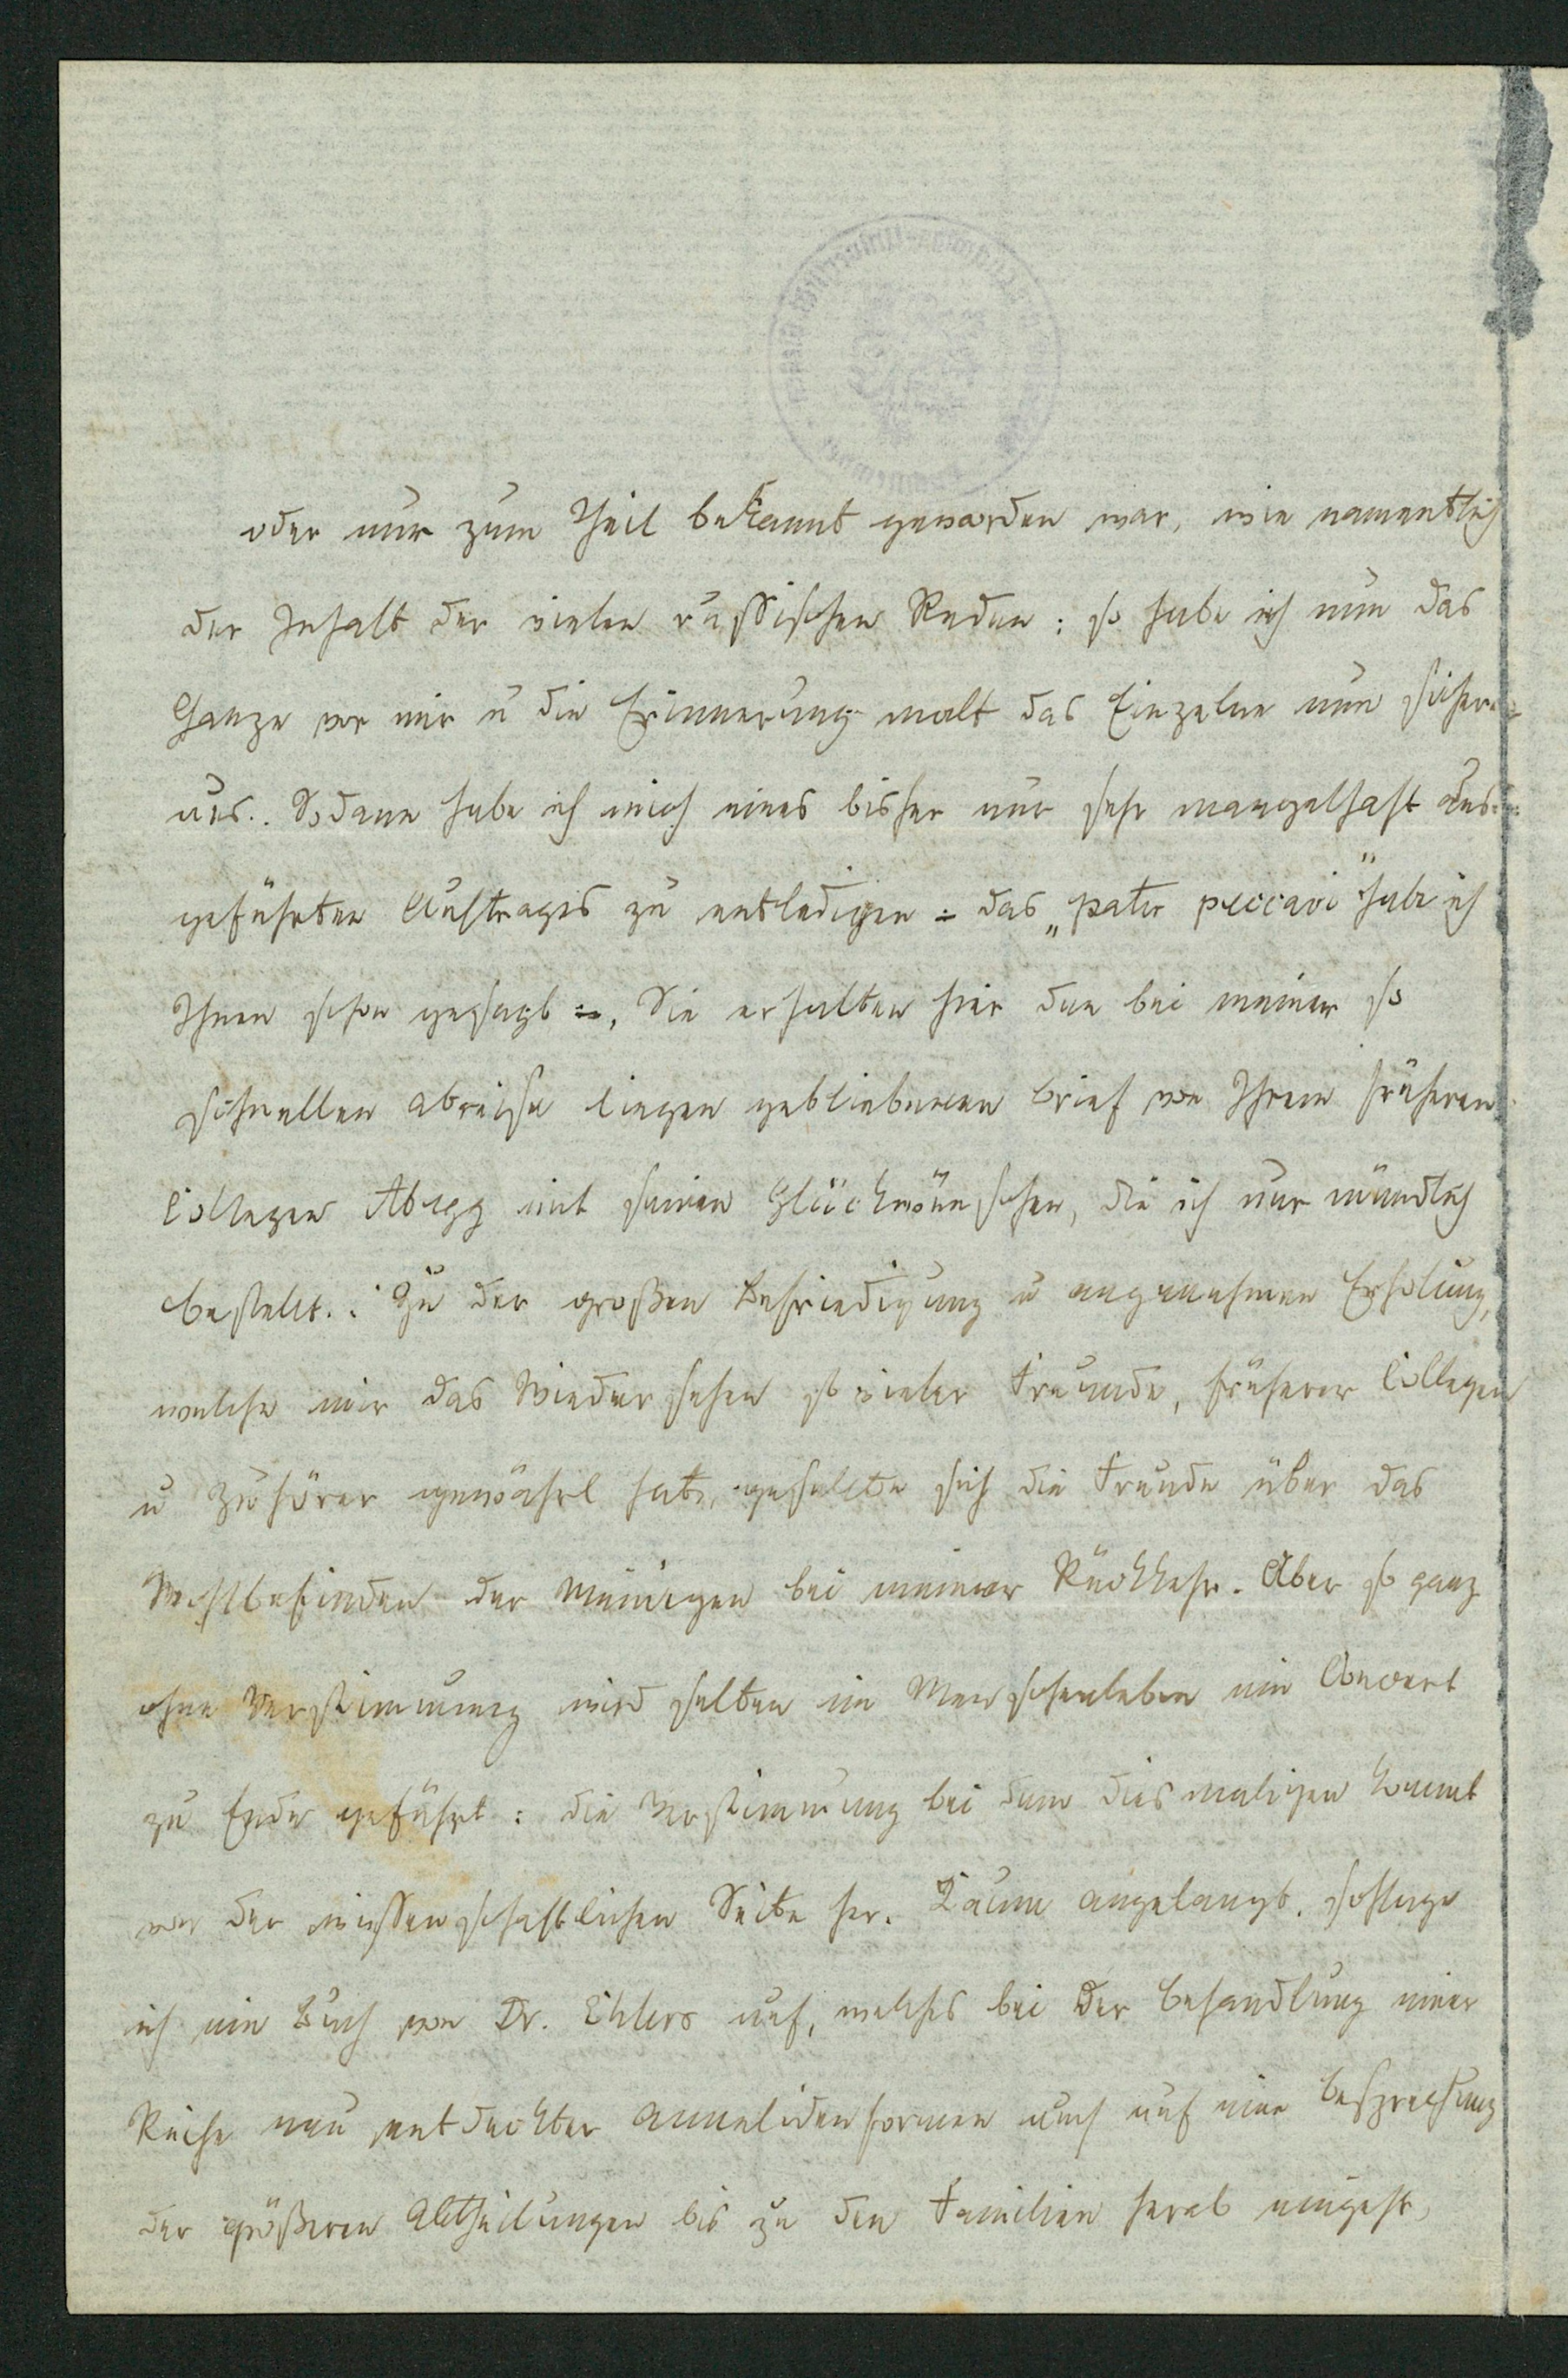 oder nur zum Theil bekannt geworden war, wie namentlich
der Inhalt der vielen russischen Reden: so habe ich nun das
Ganze vor mir u die Erinnerung malt das Einzelne nun sicherer
aus. Sodann habe ich mich eines bisher nur sehr mangelhaft aus-
geführten Auftrages zu entledigen = das „pater peccavi" habe ich
Ihnen schon gesagt =, Sie erhalten hier den bei meiner so
schnellen Abreise liegen gebliebenen Brief von Ihrem früheren
Collegen Abegg mit seinen Glückwünschen, die ich nur mündlich
bestellt. Zu der großen Befriedigung u angenehmen Erholung,
welche mir das Wiedersehen so vieler Freunde, früherer Collegen
u Zuhörer gewährt hat, gesellte sich die Freude über das
Wohlbefinden der Meinigen bei meiner Rückkehr. Aber so ganz
ohne Verstimmung wird selten im Menschenleben ein Concert
zu Ende geführt: die Verstimmung bei dem diesmaligen kommt
von der wissenschaftlichen Seite her. Kaum angelangt, schlage
ich ein Buch von Dr. Ehlers auf, welches bei der Behandlung einer
Reihe neu entdeckter Annelidenformen auch auf eine Besprechung
der größeren Abtheilungen bis zu den Familien herab eingeht,